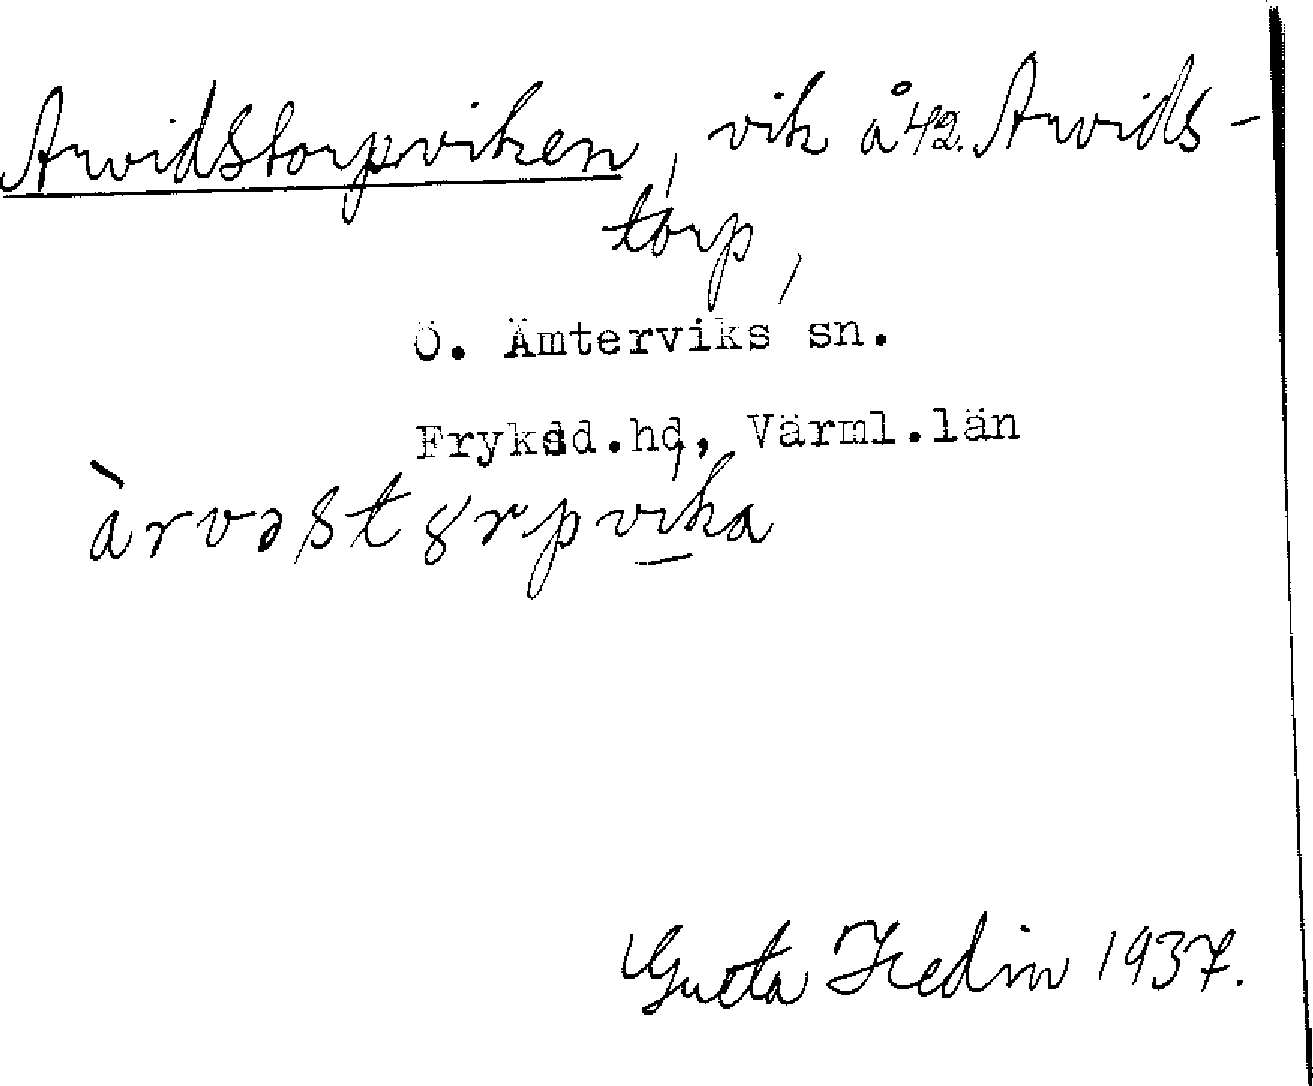 Arvidstorpviken, vik å 42. Arvids-
torp,
Ö. Ämterviks sn.
Fryksd.hd, Värml.län
àrvəstȣrpvika
Greta Hedin 1937.